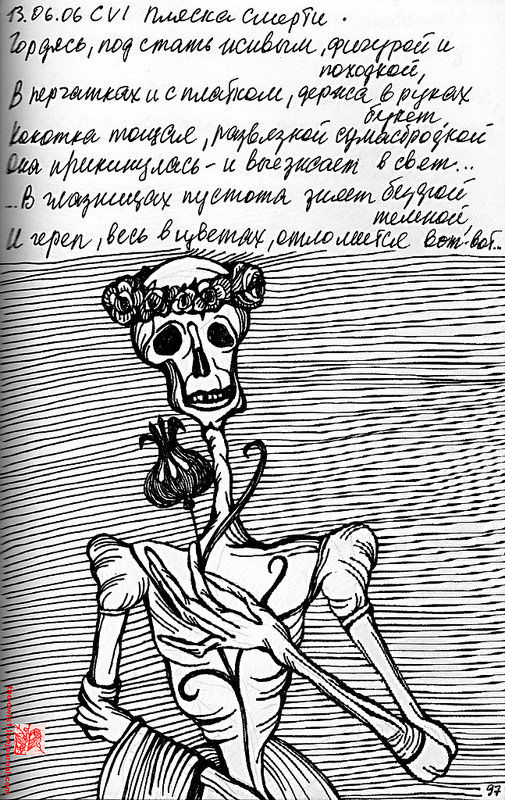 13.06.06 CVI Пляска смерти.
Гордясь, под стать живым, фигурой и
походкой,
В перчатках и с платком, держа в руках
букет,
Кокотка тощая, развязной сумасбродкой
Она прикинулась – и выезжает в свет...
...В глазницах пустота зияет бездной
темной,
И череп, весь в цветах, отломится вот-вот...
97